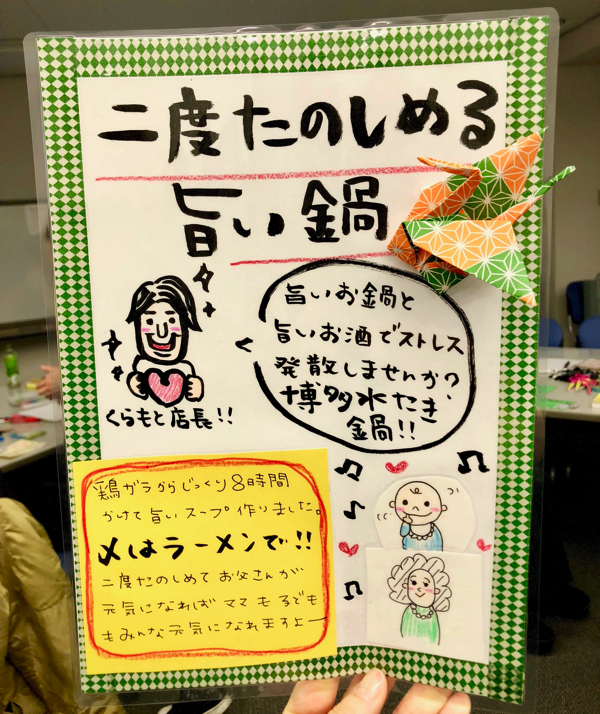 二度たのしめる
旨い鍋
旨いお鍋と
旨いお酒でストレス
発散しませんか?
博多水たき
鍋!!
くらもと店長!!
鶏ガラからじっくり8時間
かけて旨いスープ作りました。
〆はラーメンで!!
二度たのしめてお父さんが
元気になればママも子ども
もみんな元気になれますよー